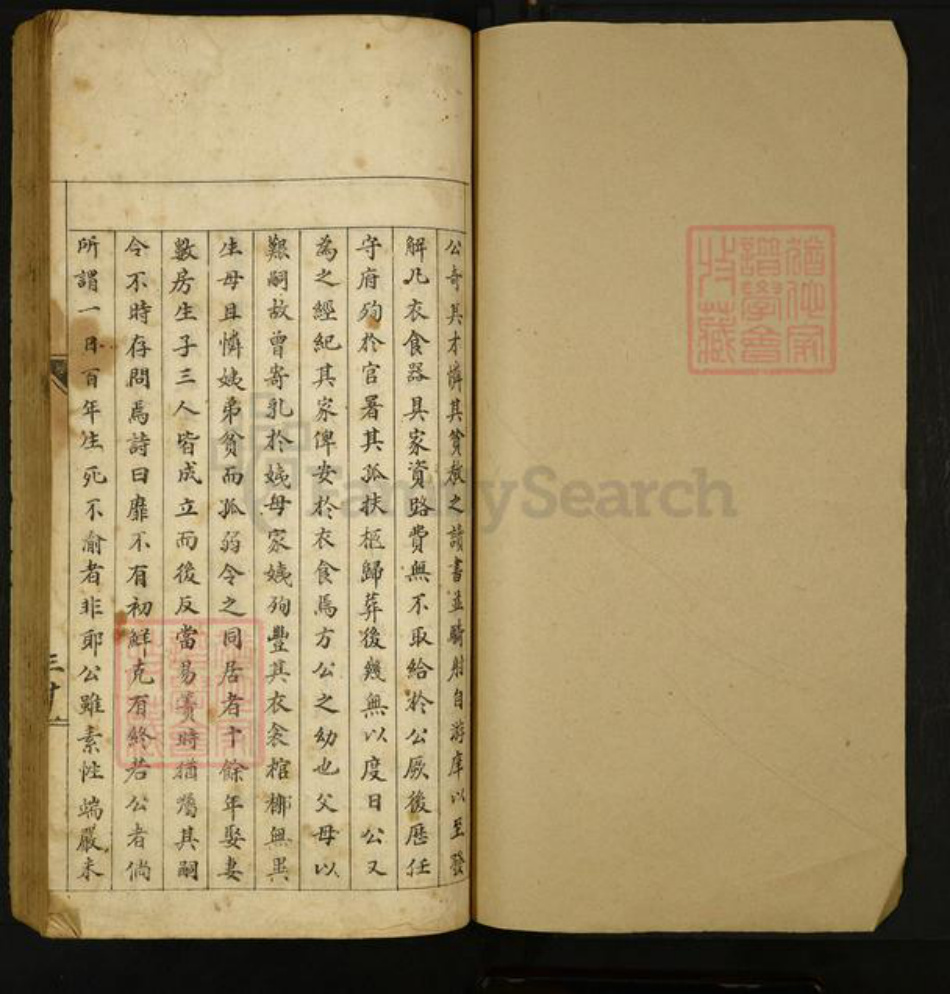 公奇其才憐其貧教之讀書並騎射自游庠以至發
解凡衣食器具家資路費無不取給於公厥後歷任
守府殉於官署其孤扶柩歸葬後幾無以度日公又
為之經紀其家俾安於衣食焉方公之幼也父母以
艱嗣故曾寄乳於姨母家姨殉豐其衣衾棺槨無異
生母且憐姨弟貧而孤弱令之同居者十餘年娶妻
數房生子三人皆成立而後反當易簀時猶囑其嗣
令不時存問焉詩曰靡不有初鮮克有終若公者倘
所謂一日百年生死不渝者非耶公雖素性端嚴未
三十
道他家譜學會收藏
FamilySearch